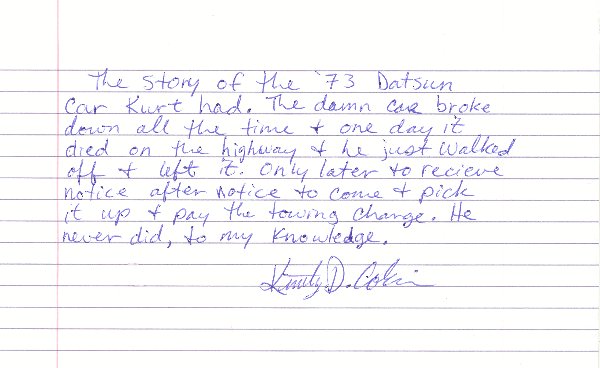 The story of the '73 Datsun
Car Kurt had. The damn car broke
down all the time + one day it
died on the highway + he just walked
off + left it. Only later to recieve
notice after notice to come + pick
it up + pay the towing charge. He
never did, to my knowledge.